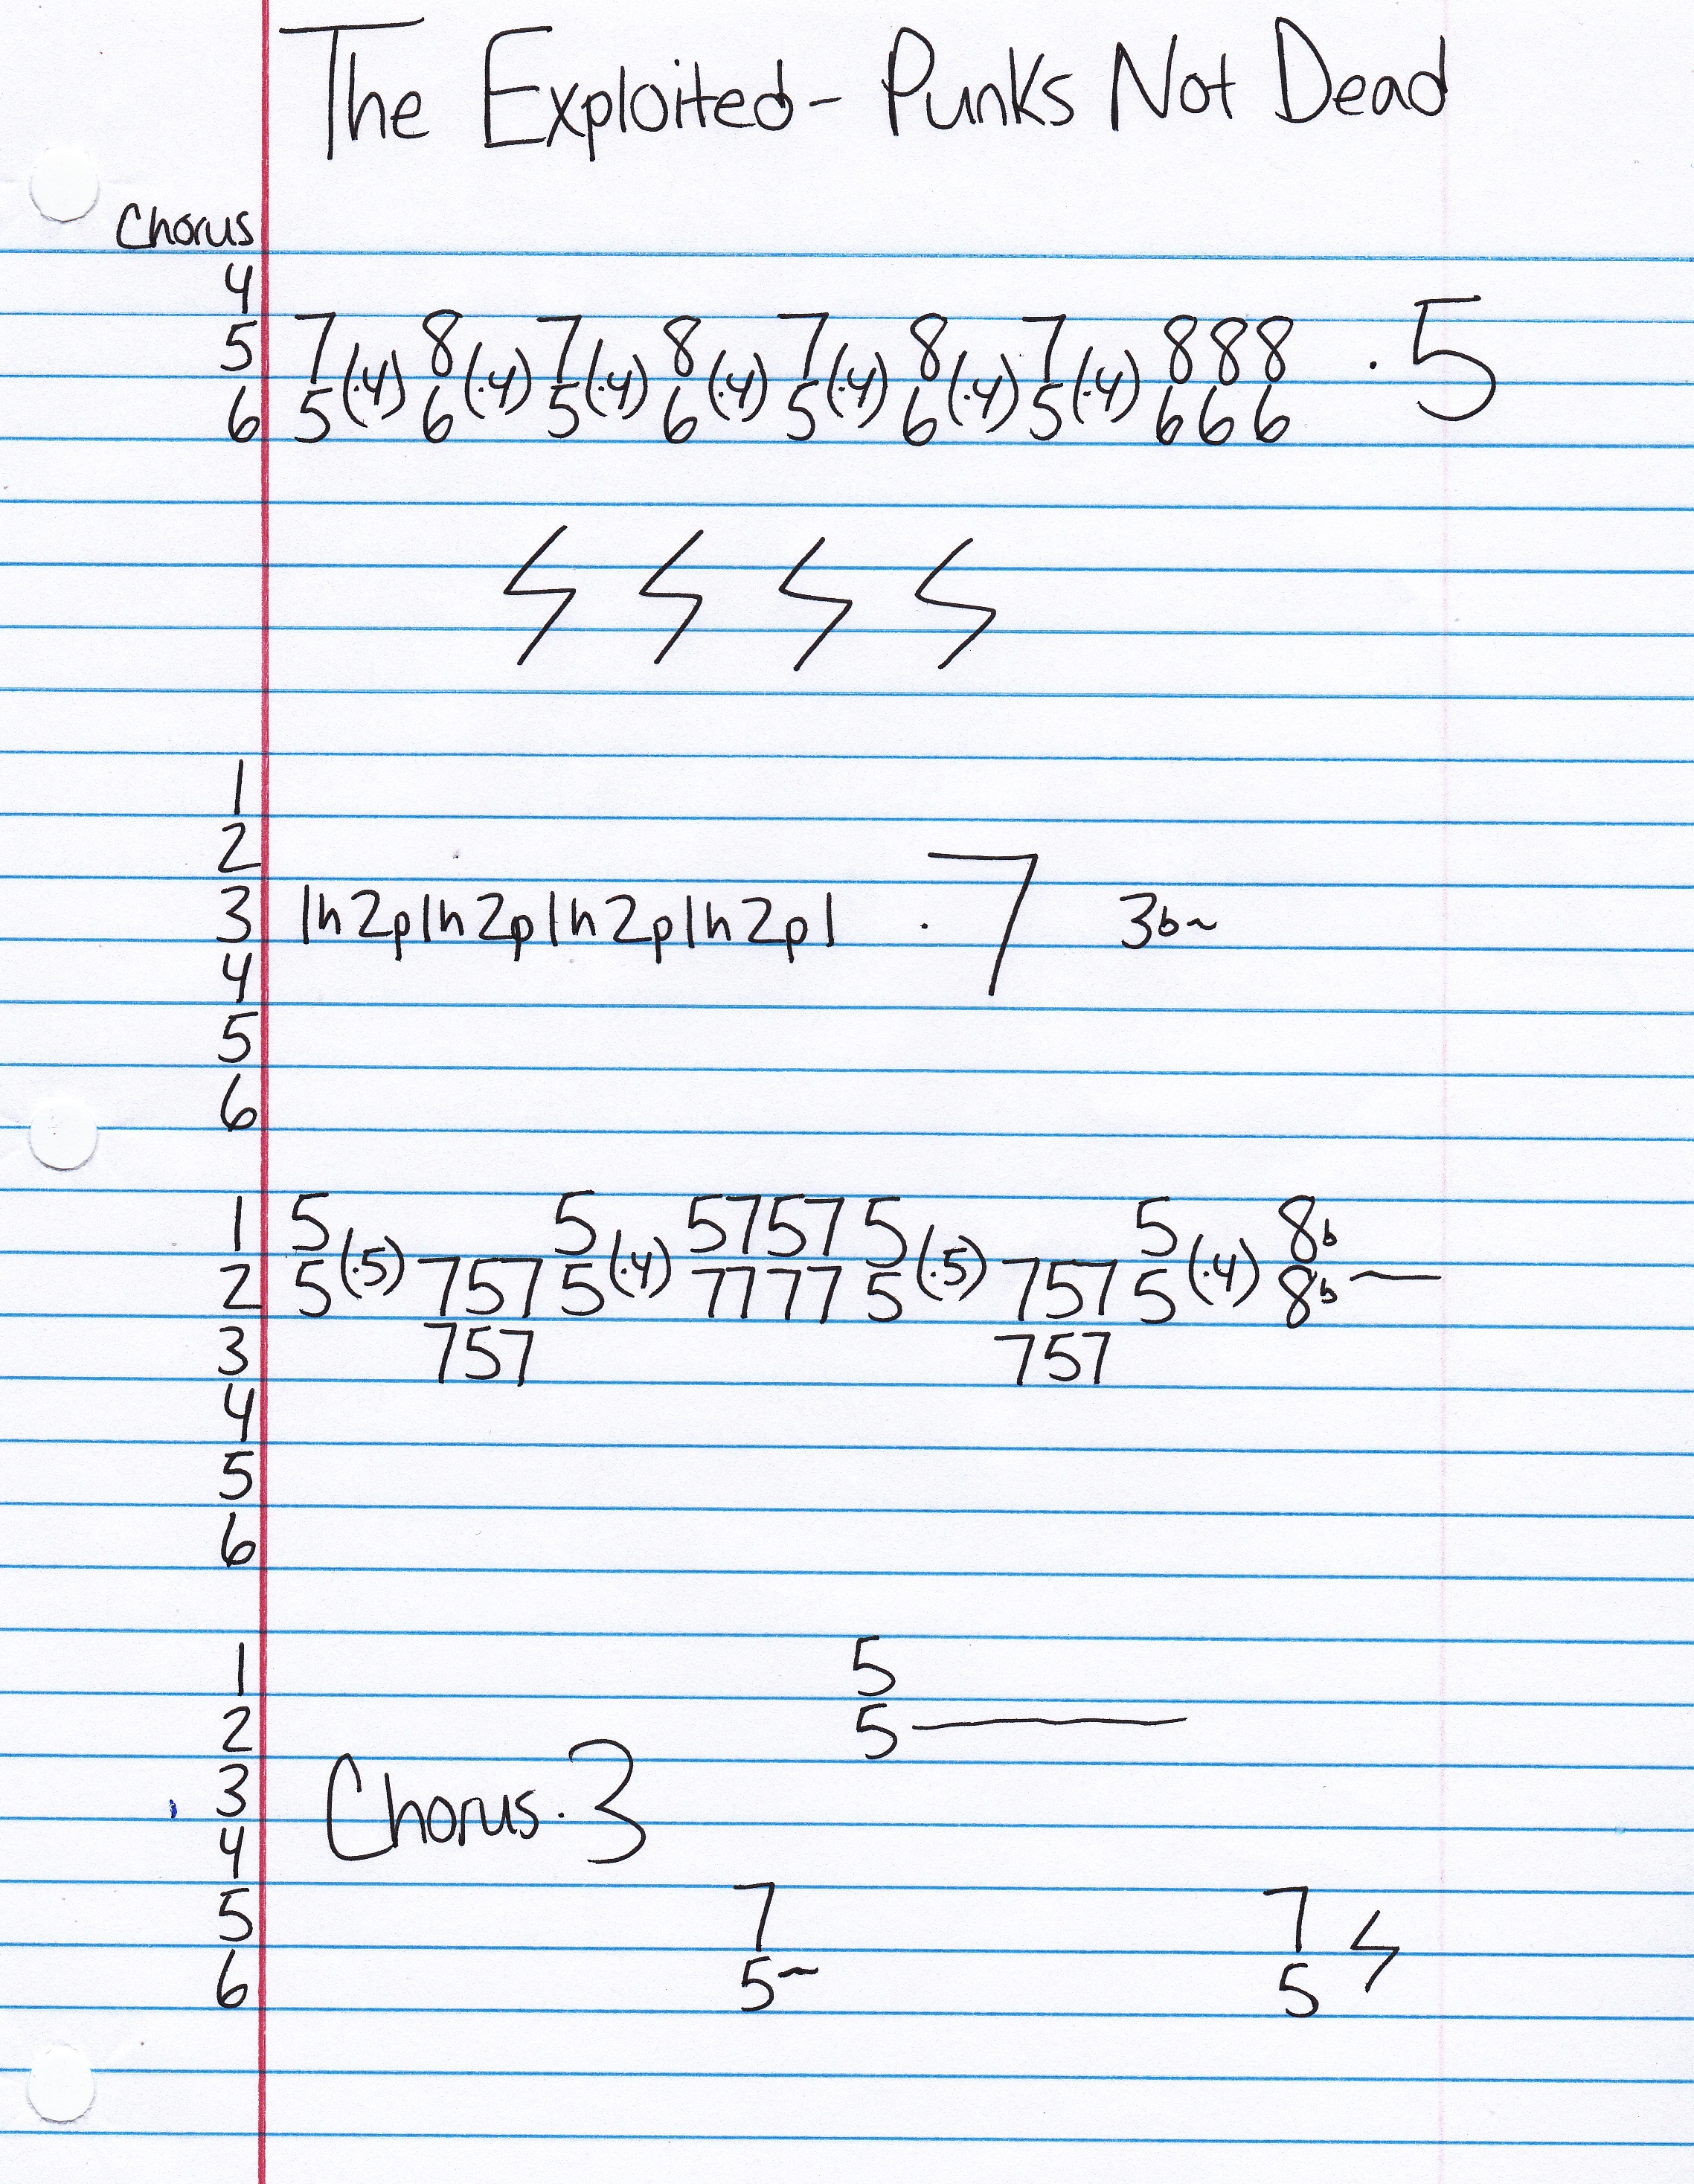 The Exploited - Punks Not Dead
Chorus
4
5 7 8 7 8 7 8 7 8 8 8 · 5
(·4) (·4) (·4) (·4) (·4) (·4) (·4)
6 5 6 5 6 5 6 5 6 6 6
1
2
3 1h2p1h2p1h2p1h2p1 · 7 3b~
4
5
6
1 5 5 5757 5 5 8b
(·5) (·4) (·5) (·4)
2 5 757 5 7777 5 757 5 8b
3 757 757
4
5
6
1 5
2 5
3 Chorus · 3
4
5 7 7
6 5~ 5